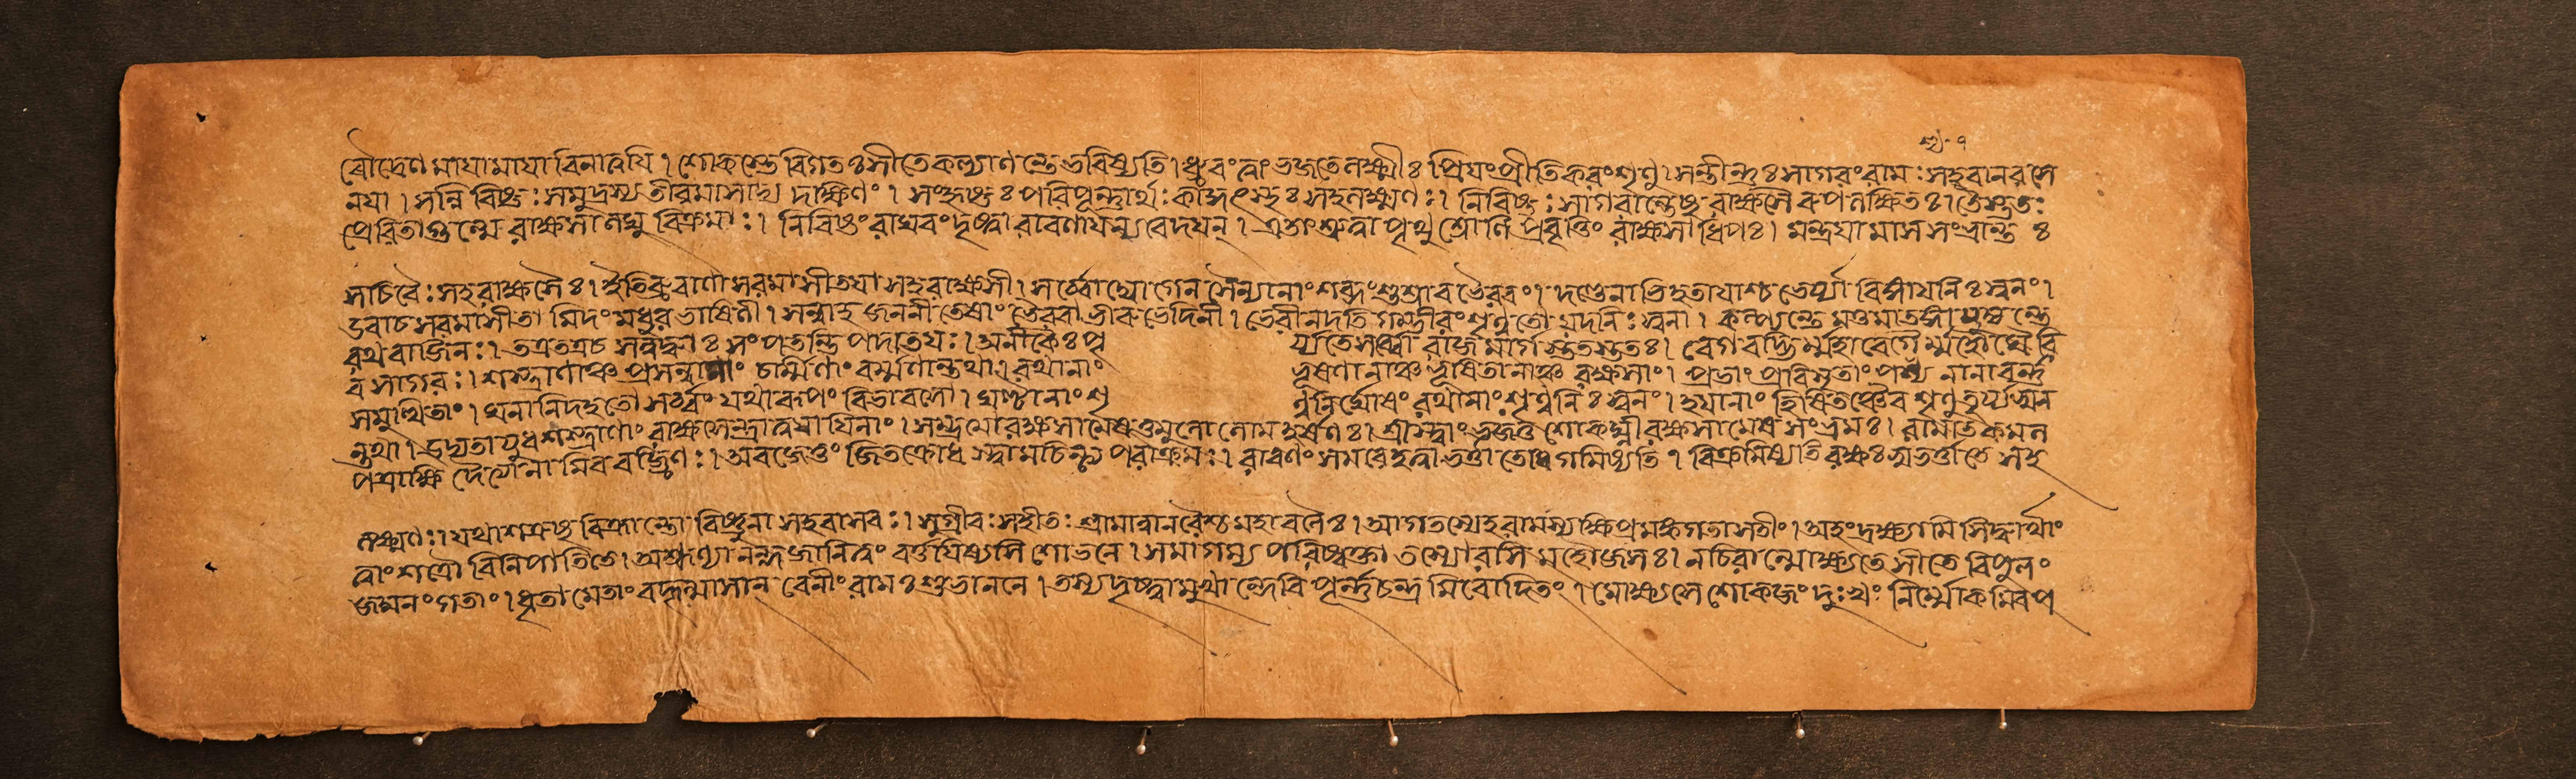 ল্য-৭
রৌদ্রেণ মায়ামায়া বিনাত্বয়ি । শোকস্তে বিগতঃ সীতে কল্যাণন্তে ভবিষ্যতি । ধ্রুবং ত্বাং ভজতে লক্ষ্মীঃ প্রিয়ং প্রীতিকরং শৃণু । সন্তীর্ন্নঃ সাগরং রামঃ সহ বানর সে
নয়া । সন্নিবিষ্টঃ সমুদ্রস্য তীরমাসাদ্য দক্ষিণং । সংহৃষ্টঃ পরিপূর্ন্নার্থঃ কাকুৎস্থঃ সহলক্ষ্মণঃ । নিবিষ্টঃ সাগরস্যান্তে রাক্ষসৈরুপলক্ষিতঃ । তৈস্ততঃ
প্রেরিতাশ্চান্যে রাক্ষসা লঘু বিক্রমাঃ । নিবিষ্টং রাঘবং দৃষ্ট্বা রাবণায়ন্যবেদয়ন্ । এতাং শ্রুত্বা পৃথু শ্রোণি প্রবৃত্তিং রাক্ষসাধিপঃ । মন্ত্রয়ামাস সংভ্রান্তঃ
সচিবৈঃ সহ রাক্ষসৈঃ । ইতি ব্রুবাণা সরমা সীতয়া সহ রাক্ষসী । সর্ব্বোদ্যোগেন সৈন্যানাং শব্দং শুশ্রাব ভৈরবং । দণ্ডেনাভিহতায়াশ্চ ভের্য্যা বিস্মায়নিঃ স্বনং ।
উবাচ সরমা সীতামিদং মধুর ভাষিণী । সন্নাহ জননী তেষাং ভৈরবা ভীরু ভেদিনী । ভেরী নদতি গম্ভীরং শৃণুতোয়দনিঃ স্বনা । কল্প্যন্তে মত্তমাতঙ্গা যুজ্যন্তে
রথ বাজিনঃ । তত্র তত্র চ সন্নদ্ধাঃ সংপতন্তি পদাতয়ঃ । অনীকৈঃ পূ র্য্যতে সর্ব্বো রাজমার্গ স্ততস্ততঃ । বেগবদ্ভির্ম্মহাবেগৈ র্ম্মহৌঘৈরি
ব সাগরঃ । শস্ত্রাণাঞ্চ প্রসন্নানাং চর্ম্মণাং বর্ম্মণান্তথা । রথানাং ভূষণানাঞ্চ ভূষিতানাঞ্চ রক্ষসাং । প্রভাং প্রবিসৃতাং পশ্য নানাবর্ন্ন
সমুত্থিতাং । ঘনানি দহতো সর্ব্বং যথারূপং বিভাবসো । ঘণ্টানাং শৃ ণু নির্ঘোষং রথানাং শৃণু নিঃ স্বনং । হয়ানাং হ্রিষিতঞ্চৈব শৃণু তূর্য্যস্বন
ন্তথা । উদ্যতায়ুধ শস্ত্রাণাং রাক্ষসেন্দ্রানুয়ায়িনাং । সম্ভ্রমো রক্ষসামেষ তুমুলো লোমহর্ষণঃ । শ্রীস্ত্বাং ভজতু শোকঘ্নী রক্ষসামেষ সংভ্রমঃ । রামাত্কমল
পত্রাক্ষি দৈত্যেনামিব বজ্রিণঃ । অবজেতুং জিতক্রোধ স্ত্বামচিন্ত্য পরাক্রমঃ । রাবণং সমরে হত্বা ভর্ত্তা তোধি গমিষ্যতি । বিক্রমিষ্যতি রক্ষঃ সুভর্ত্তা তে সহ
লক্ষ্মণঃ । যথা শত্রুষু বিক্রান্তো বিষ্ণুনা সহ বাসবঃ । সুগ্রীবঃ সহীতঃ শ্রীমান্বানরৈশ্চ মহাবলৈঃ । আগতস্যেহ রামস্য ক্ষিপ্রমঙ্ক গতাসতীং । অহং দ্রক্ষ্যামি সিদ্ধার্থাং
ত্বাং শত্রৌ বিনিপাতিতে । অশ্রূণ্যানন্দজানি ত্বং বর্ত্তয়িষ্যসি শোভনে । সমাগম্য পরিষ্বক্তা তস্যোরসি মহোজসঃ । নচিরান্মোক্ষ্যতে সীতে বিপুলং
জঘনং গতাং । ধৃতামেতাং বহূন্মাসান্ বেনীং রামঃ শুভাননে । তস্য দৃষ্ট্বা মুখং দেবি পূর্ন্নচন্দ্র মিবোদিতং । মোক্ষ্যসে শোকজং দুঃখং নির্ম্মোকমিবপ